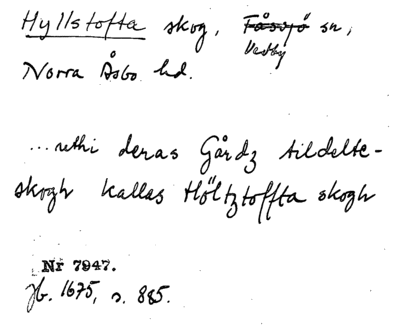 Hyllstofta skog, Fåsjö sn,
Vedby
Norra Åsbo hd.
... uthi deras Gårdz tildelte-
skogh kallas Höltztoffta skogh
Nr 7947.
Jb. 1675, s. 885.